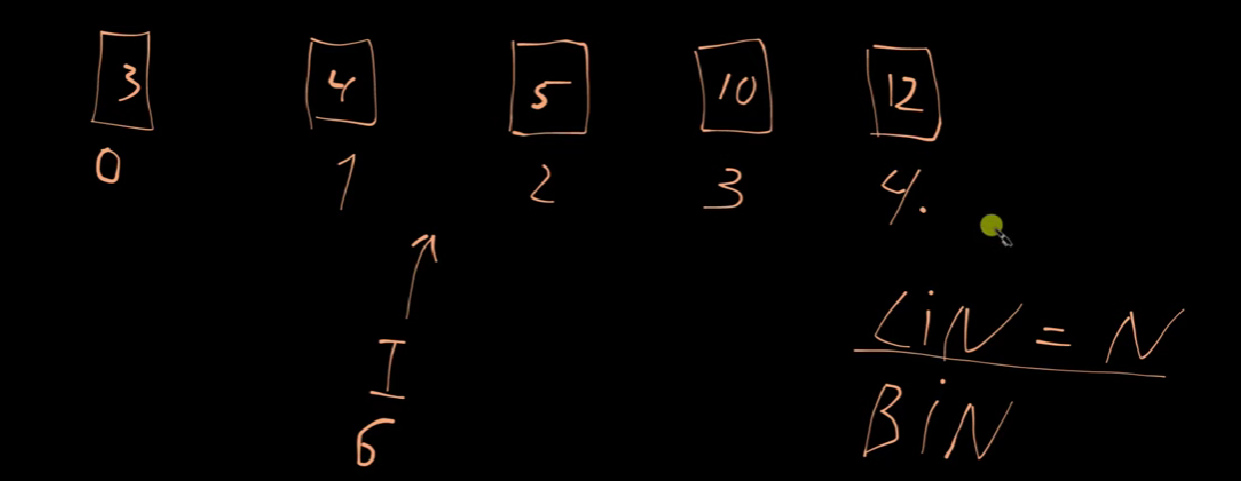 3 4 5 10 12
0 1 2 3 4.
I
6
LiN = N
BiN